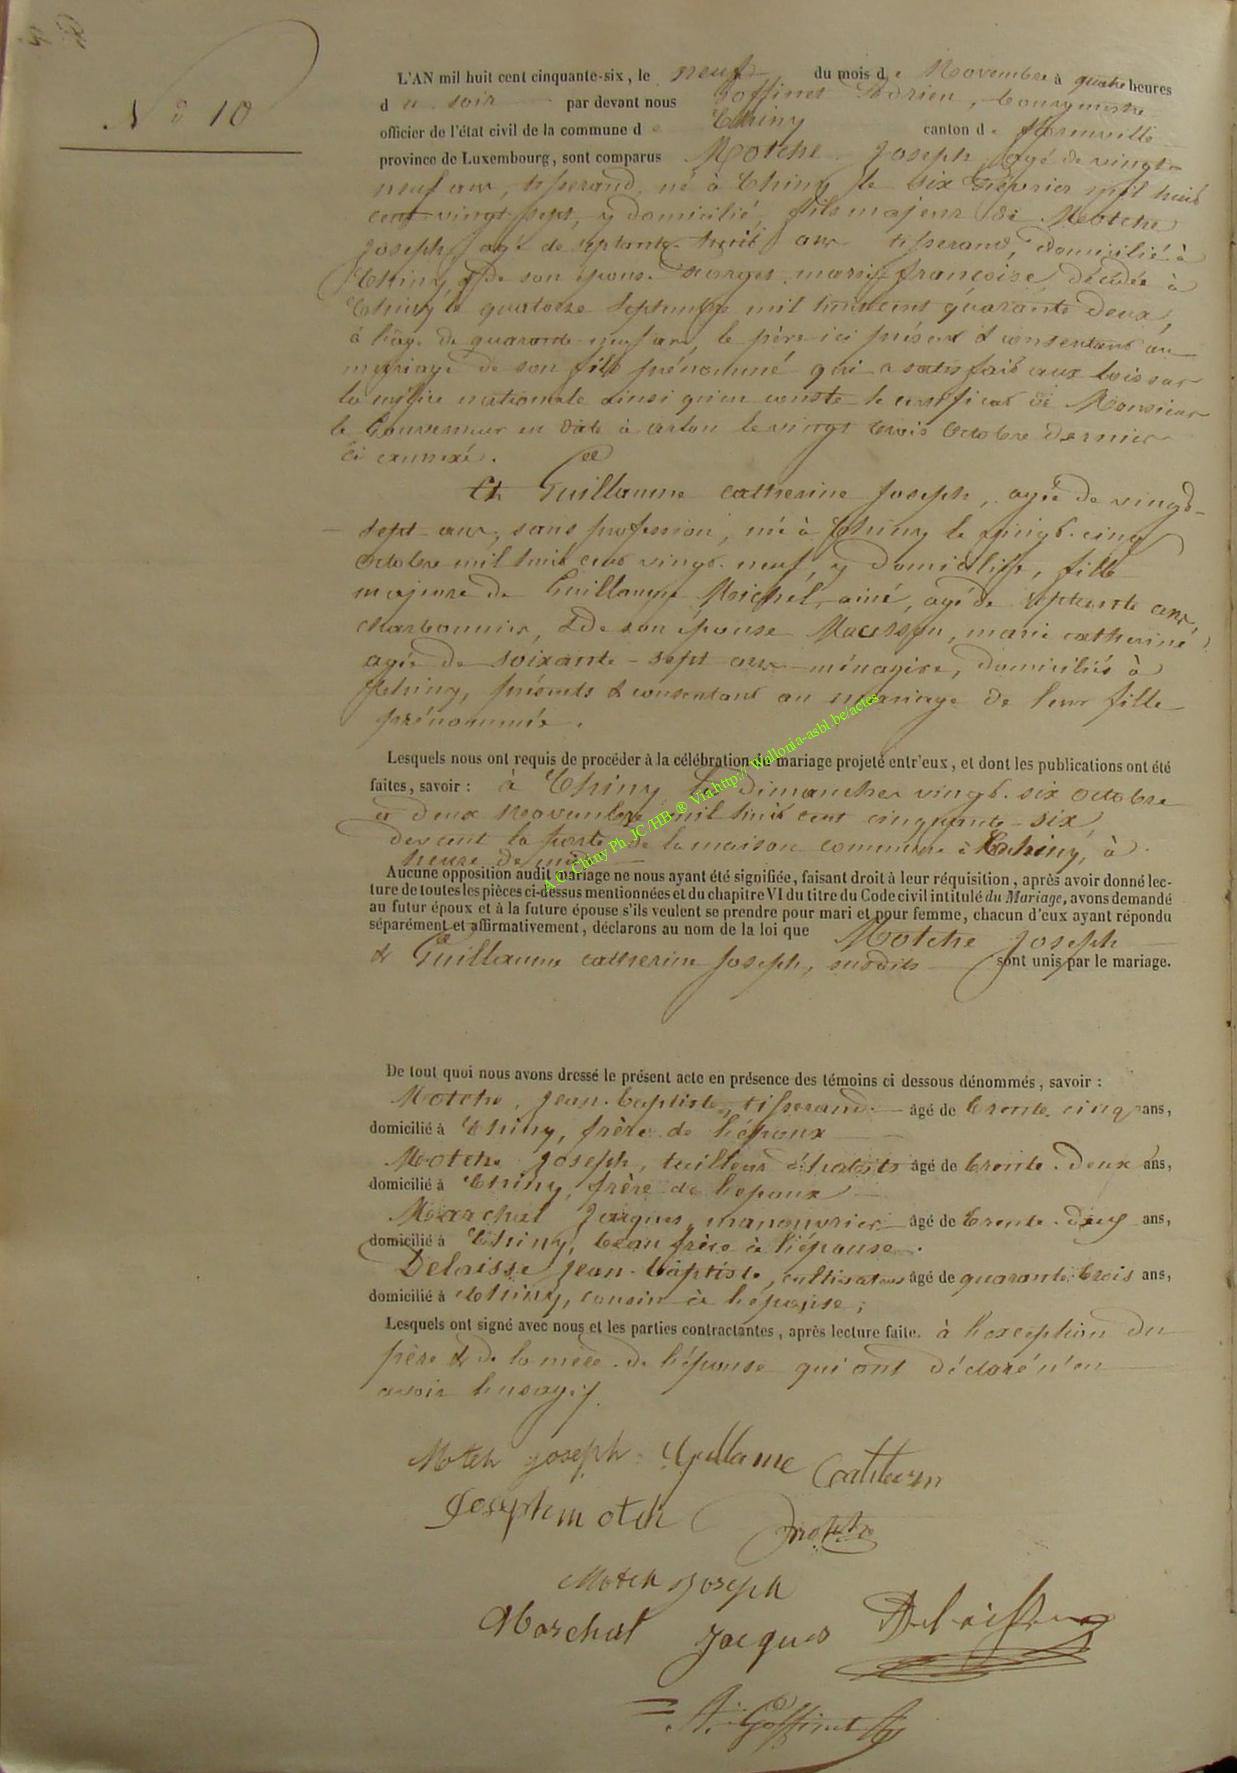 N° 10
L'AN mil huit cent cinquante-six, le neuf du mois de Novembre à quatre heures
du soir par devant nous Goffinet Adrien, bourgmestre
officier de l'état civil de la commune de Chiny canton de florenville
province de Luxembourg, sont comparus Motche Joseph, agé de vingt-
neuf ans, tisserand, né à Chiny le six février mil huit
cent vingt sept, y domicilié, fils majeur de Motche
Joseph, agé de septante-huit ans tisserand, domicilié à
Chiny, & de son épouse marie françoise, décédée à
Chiny le quatorze Septembre mil huit cent quarante deux,
à l'âge de quarante-neuf ans, le père ici présent & consentant au
mariage de son fils prénommé qui a satisfait aux lois sur
la milice nationale ainsi qu'en conste le certificat de Monsieur
le Gouverneur en date à arlon le vingt trois Octobre dernier
ci annexé.
Et Guillaume catherine Joseph, agée de vingt-
sept ans, sans profession, née à Chiny le vingt-cinq
Octobre mil huit cent vingt-neuf, y domiciliée, fille
majeure de Guillaume Michel, ainé, agé de septante ans,
charbonnier, & de son épouse marie catherine
agée de soixante-sept ans ménagère, domiciliés à
Chiny, présents & consentant au mariage de leur fille
prénommée.
Lesquels nous ont requis de procéder à la célébration du mariage projeté entr'eux, et dont les publications ont été
faites, savoir : à Chiny les Dimanches vingt-six octobre
& deux Novembre mil huit cent cinquante-six,
devant la porte de la maison commune à Chiny, à
heure de midi
Aucune opposition audit mariage ne nous ayant été signifiée, faisant droit à leur réquisition, après avoir donné lec-
ture de toutes les pièces ci-dessus mentionnées et du chapitre VI du titre du Code civil intitulé du Mariage, avons demandé
au futur époux et à la future épouse s'ils veulent se prendre pour mari et pour femme, chacun d'eux ayant répondu
séparément et affirmativement, déclarons au nom de la loi que Motche Joseph
& Guillaume catherine Joseph, susdits sont unis par le mariage.
De tout quoi nous avons dressé le présent acte en présence des témoins ci dessous dénommés, savoir :
Motche, Jean-baptiste, tisserand âgé de trente-cinq ans,
domicilié à Chiny, frère de l'époux
Motche Joseph, tailleur d'habits âgé de trente-deux ans,
domicilié à Chiny, frère de l'époux
Marchal Jacques, manouvrier âgé de trente-deux ans,
domicilié à Chiny, beau frère à l'épouse.
Delaisse Jean-baptiste, cultivateur âgé de quarante-trois ans,
domicilié à Chiny, cousin à l'épouse;
Lesquels ont signé avec nous et les parties contractantes, après lecture faite. à l'exception du
père & de la mère de l'épouse qui ont déclaré n'en
avoir l'usage.
Motch joseph Gullame Catherin
Joseph motch
Motch joseph
Marchal Jacques Delaisse
A. Goffinet
A.C. Chiny Ph. JC /HB ® Via http://wallonia-asbl.be/actes